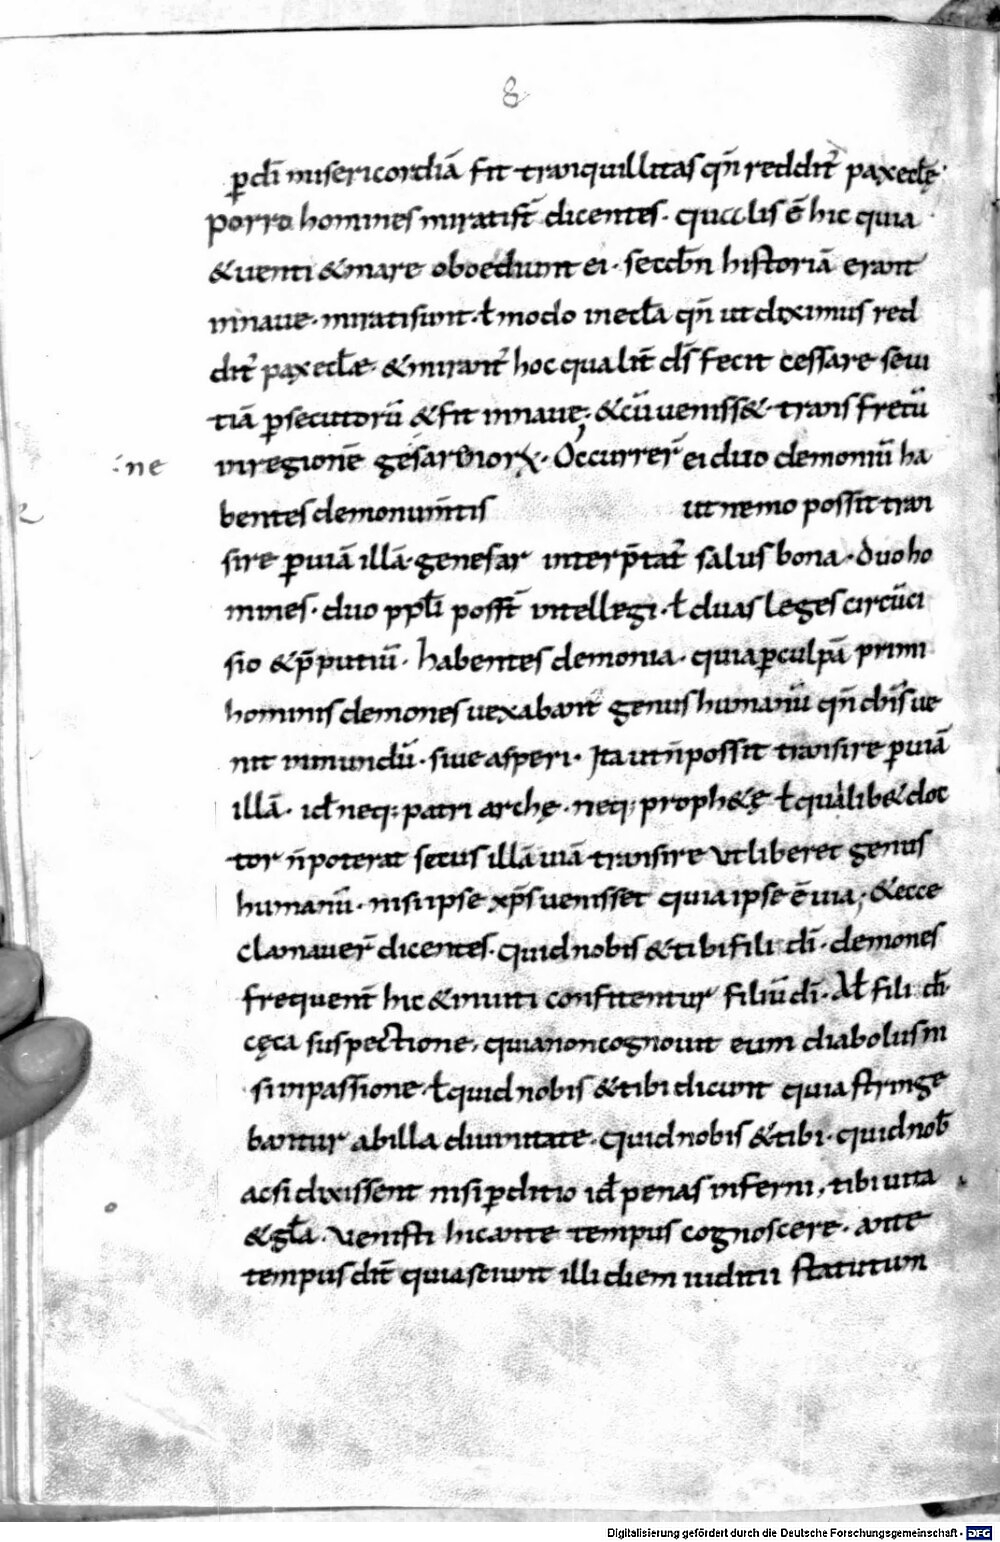 8
ꝑ dī misericordiā fit tranquillitas qn̄ reddit᷑ pax ecl̄ę·
porro homines mirati st̄ dicentes· qualis ē hic quia
& uenti & mare oboediunt ei· sec̄dn̄ historiā erant
in naue· mirati sunt· ł modo in ecl̄a qn̄ ut diximus red
dit᷑ pax ecl̄æ· & mirant᷑ hoc qualit̄ ds̄ fecit cessare seui
tiā ꝑsecutorū & fit in naue; & cū ueniss& trans fretū
in regionē gesarenorꝝ· Occurrer̄ ei duo demoniū ha
:ne
bentes demonum̄tis ut nemo possit tran
sire ꝑ uiā illā· genesar interp̄tat᷑ salus bona· duo ho
mines· duo ppl̄i poss̄t intellegi· ł duas leges circūci
sio & p̄putiū· habentes demonia· quia ꝑ culpā primi
hominis demones uexabant genus humanū qn̄ dn̄s ue
nit in mundū· siue asperi· Ita ut n̄ possit transire ꝑ uiā
illā· id neq; patri archę· neq; proph&ę ł qualib& doc
tor n̄ poterat secus illā uiā transire ut liberet genus
humanū· nisi ipse xp̄s uenisset quia ipse ē uia; & ecce
clamauer̄ dicentes· quid nobis & tibi fili dī· demones
frequent̄ hic & inuiti confitentur filiū dī· Ał fili dī
cęca suspectione, quia non cognouit eum diabolus ni
si in passione· ł quid nobis & tibi dicunt quia stringe
bantur ab illa diuinitate· quid nobis & tibi· quid nob̄
ac si dixissent nisi ꝑditio id penas inferni, tibi uita
& gl̄a· Venisti hic ante tempus cognoscere· ante
tempus dīt quia sciunt illi diem iuditii statutum
Digitalisierung gefördert durch die Deutsche Forschungsgemeinschaft - DFG